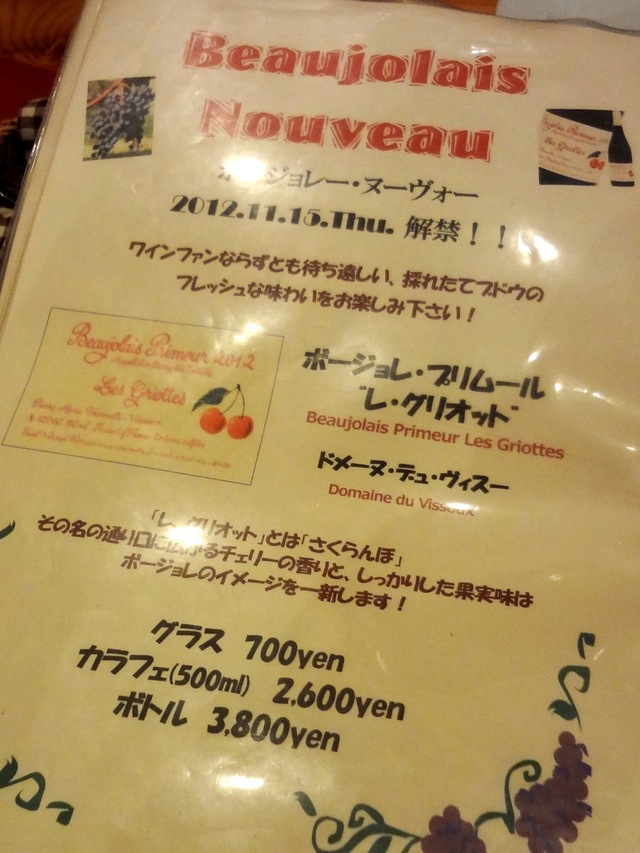 Beaujolais
Nouveau
ボージョレー・ヌーヴォー
2012.11.15.Thu. 解禁！！
ワインファンならずとも待ち遠しい、採れたてブドウの
フレッシュな味わいをお楽しみ下さい！
Beaujolais Primeur 2012
Les Griottes
ボージョレ・プリムール
"レ・グリオット"
Beaujolais Primeur Les Griottes
ドメーヌ・デュ・ヴィスー
Domaine du Vissoux
「レ・グリオット」とは「さくらんぼ」
その名の通り口に広がるチェリーの香りと、しっかりした果実味は
ボージョレのイメージを一新します！
グラス 700yen
カラフェ(500ml) 2,600yen
ボトル 3,800yen